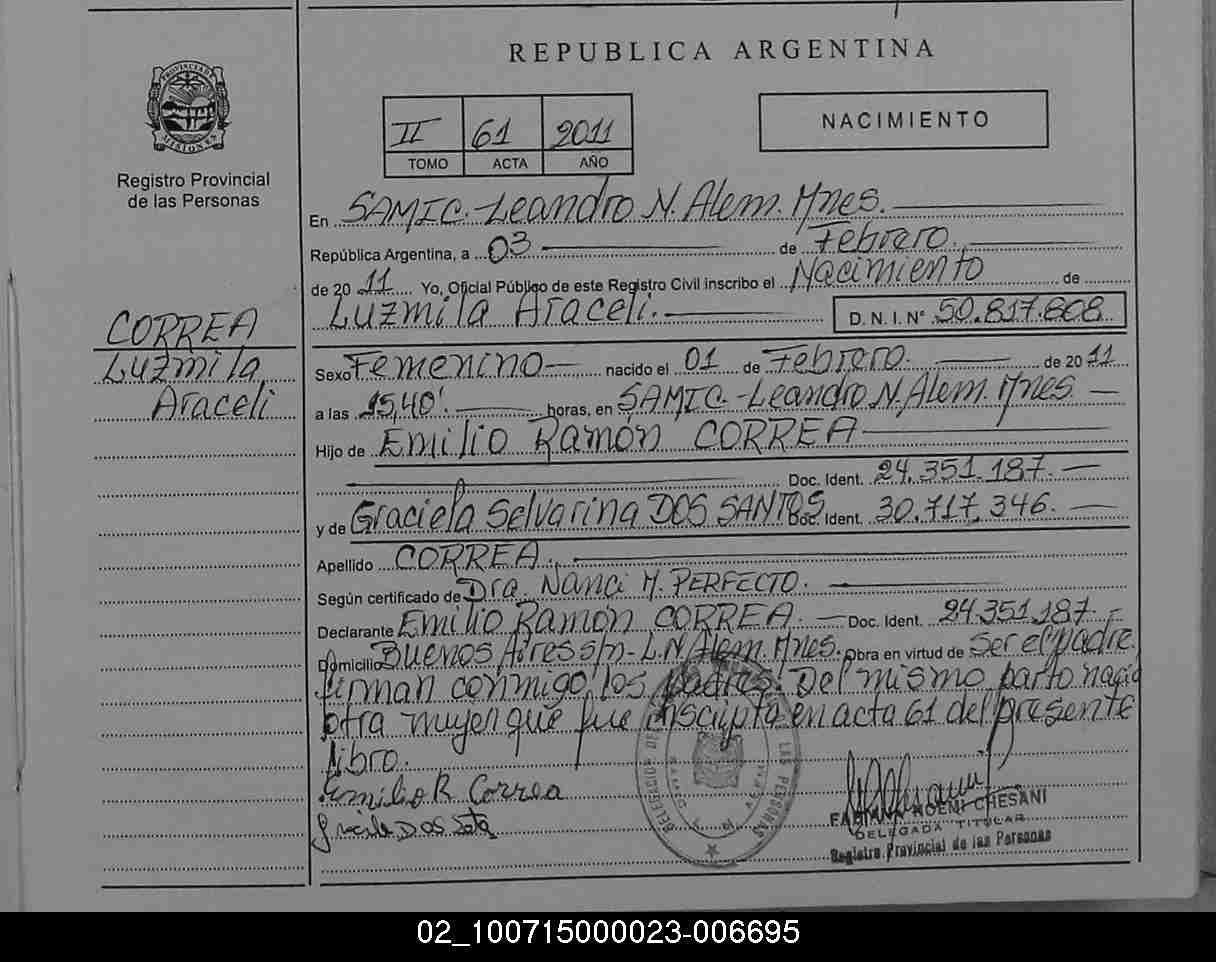 REPUBLICA ARGENTINA
PROVINCIA DE
MISIONES
Registro Provincial
de las Personas
II 61 2011
TOMO ACTA AÑO
NACIMIENTO
En SAMIC.-Leandro N. Alem. Mnes.
República Argentina, a 03 de Febrero.
de 20 11 Yo, Oficial Público de este Registro Civil inscribo el Nacimiento de
Luzmila Araceli. D. N. I. N° 50.817.808
CORREA
Luzmila
Araceli
Sexo Femenino nacido el 01 de Febrero. de 20 11
a las 15,40'. horas, en SAMIC.-Leandro N. Alem. Mnes
Hijo de Emilio Ramón CORREA
Doc. Ident. 24.351.187.
y de Graciela Selvarina DOS SANTOS Doc. Ident. 30.717.346.
Apellido CORREA.
Según certificado de Dra. Nanci M. PERFECTO.
Declarante Emilio Ramón CORREA. Doc. Ident. 24.351.187.
Domicilio Buenos Aires s/n-L.N. Alem. Mnes. Obra en virtud de Ser el padre.
firman conmigo los padres. Del mismo parto nació
otra mujer que fue inscripta en acta 61 del presente
libro.
Emilio R Correa
FABIANA NOEMI CHESANI
DELEGADA TITULAR
Registro Provincial de las Personas
02_100715000023-006695